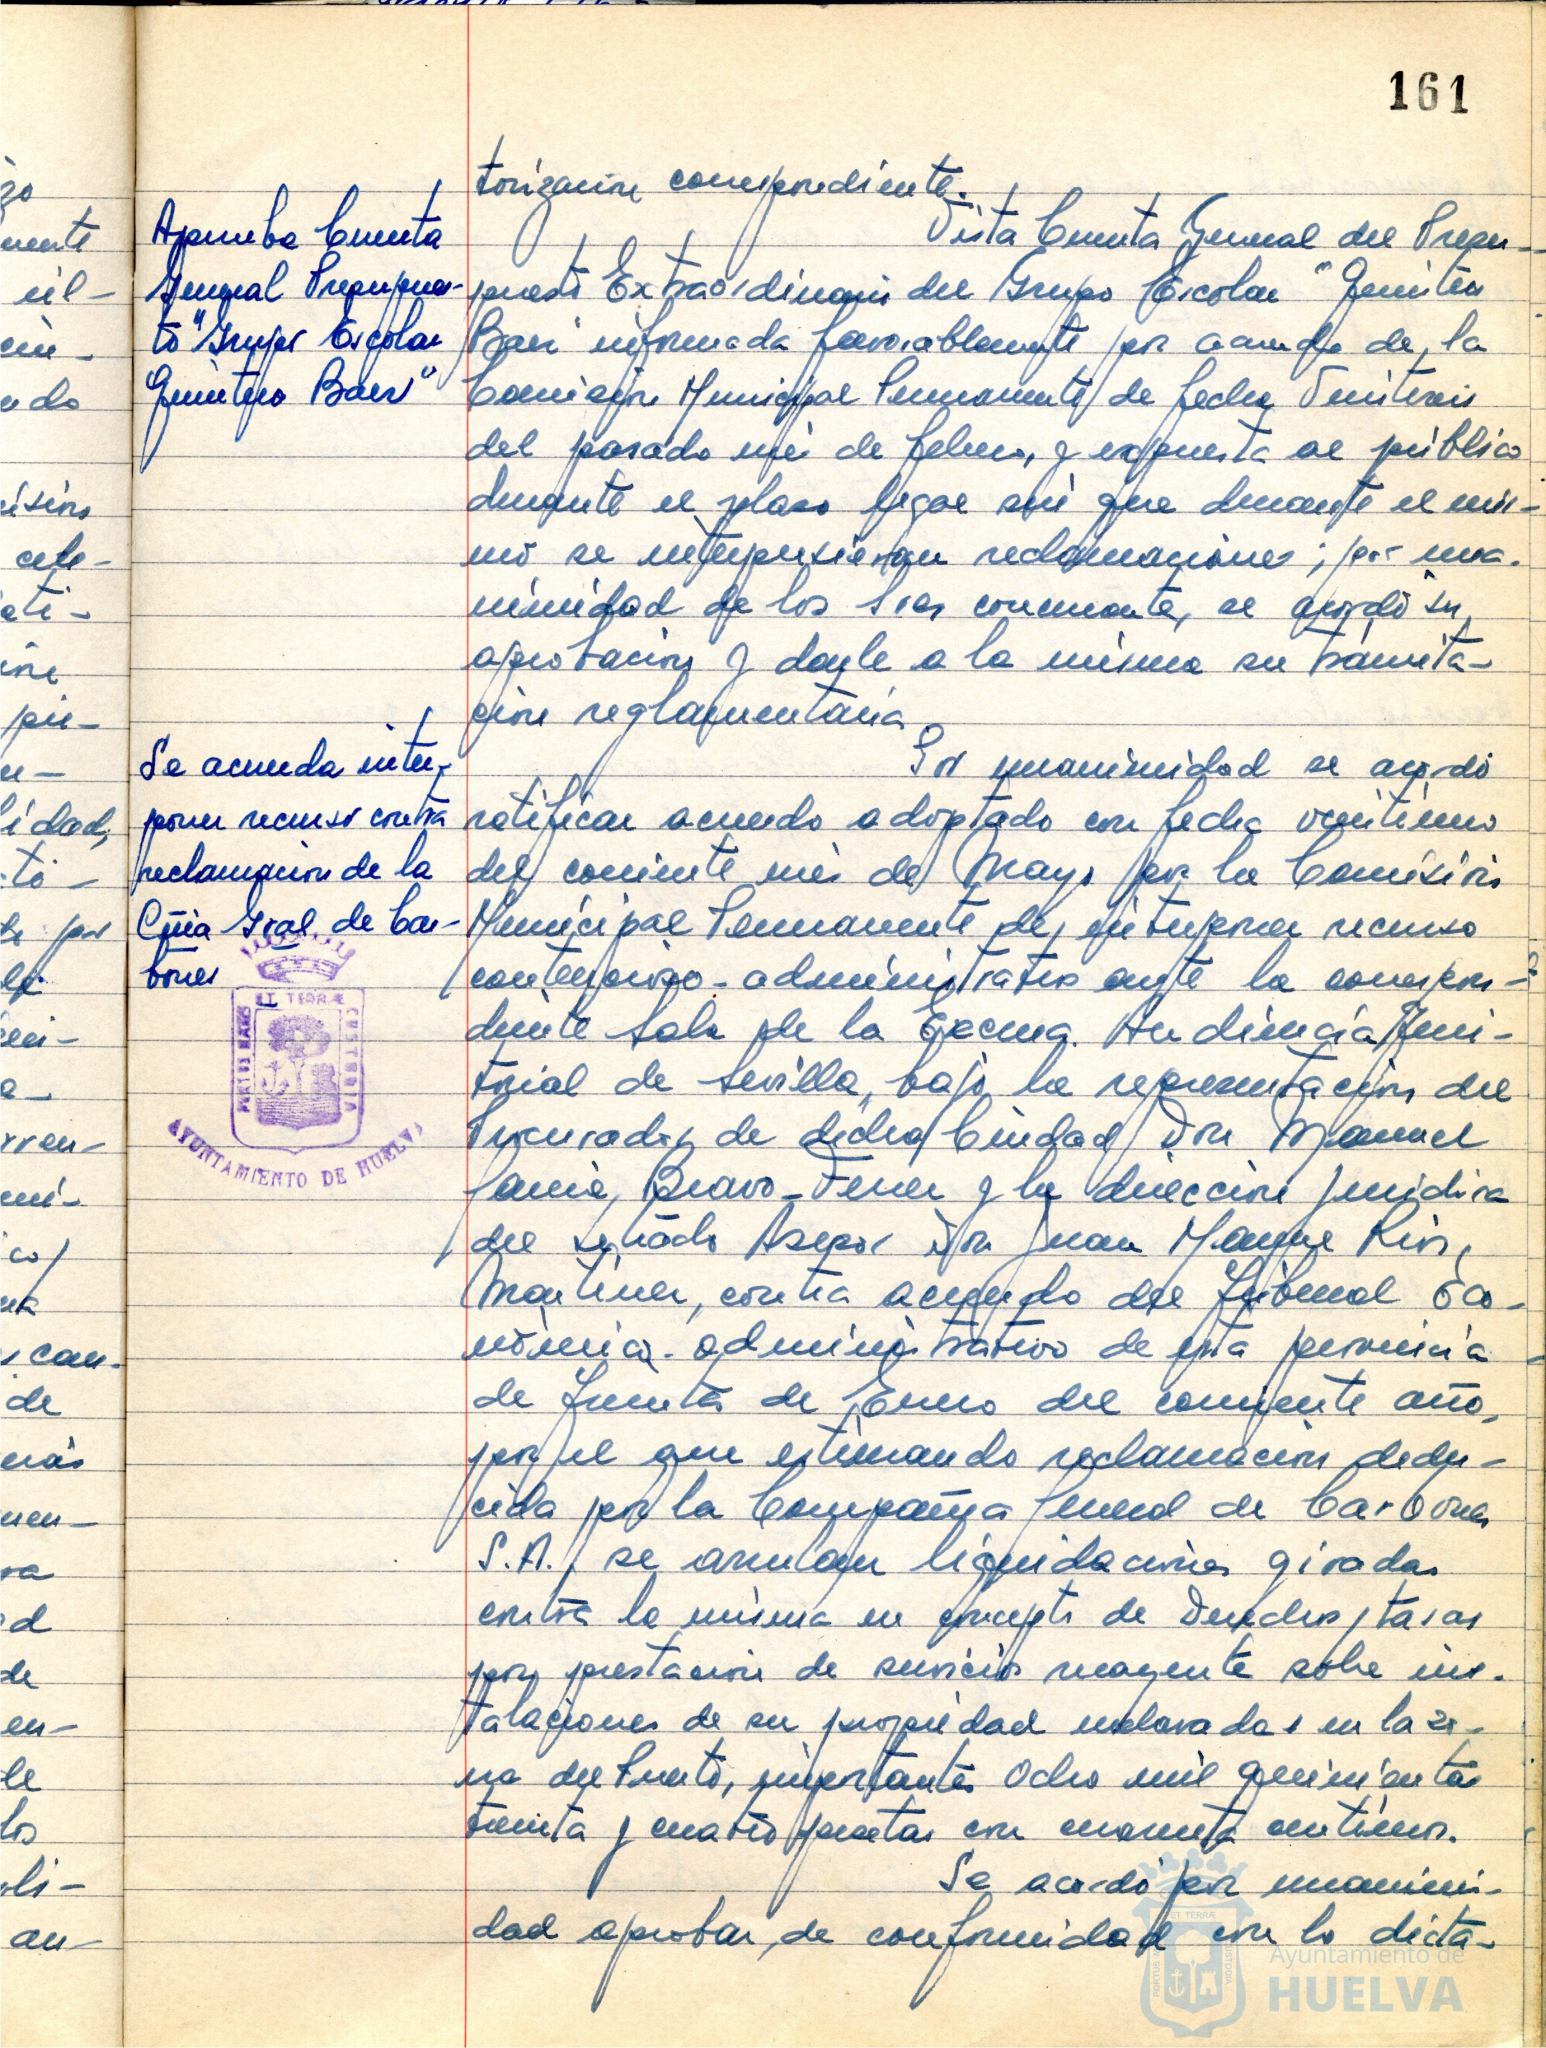 161
torización correspondiente.
Aprueba Cuenta
General Presupues-
to "Grupo Escolar
Quintero Baez"
Vista Cuenta General del Presu-
puesto Extraordinario del Grupo Escolar "Quintero
Baez" informada favorablemente por acuerdo de la
Comisión Municipal Permanente de fecha
del pasado mes de febrero, y expuesta al público
durante el plazo legal sin que durante el mis-
mo se interpusieran reclamaciones; por una-
nimidad de los Sres concurrentes, se acordó su
aprobación y darle a la misma su tramita-
ción reglamentaria.
Se acuerda inter-
poner recurso contra
reclamación de la
Cñia Gral de Car-
bones
Por unanimidad se acordó
ratificar acuerdo adoptado con fecha veintiuno
del corriente mes de Mayo por la Comisión
Municipal Permanente de interponer recurso
contencioso-administrativo ante la correspon-
diente Sala de la Excma. Audiencia Terri-
torial de Sevilla, bajo la representación del
Procurador de dicha Ciudad Don Manuel
García, Bravo-Ferrer y la dirección jurídica
del Letrado Asesor Don Juan Manuel Rios,
Martinez, contra acuerdo del Tribunal Eco-
nómico-administrativo de esta provincia
de treinta de Enero del corriente año,
por el que estimando reclamación dedu-
cida por la Compañia General de Carbones
S.A., se anulan liquidaciones giradas
contra la misma en concepto de Derechos y tasas
por prestación de servicios recayente sobre ins-
talaciones de su propiedad enclavadas en la zo-
na del Puerto, importantes Ocho mil quinientas
treinta y cuatro pesetas con cuarenta centimos.
Se acordó por unanimi-
dad aprobar, de conformidad con lo dicta-
ET TERRÆ
PORTUS MARIS
CUSTODIA
AYUNTAMIENTO DE HUELVA
Ayuntamiento de
HUELVA